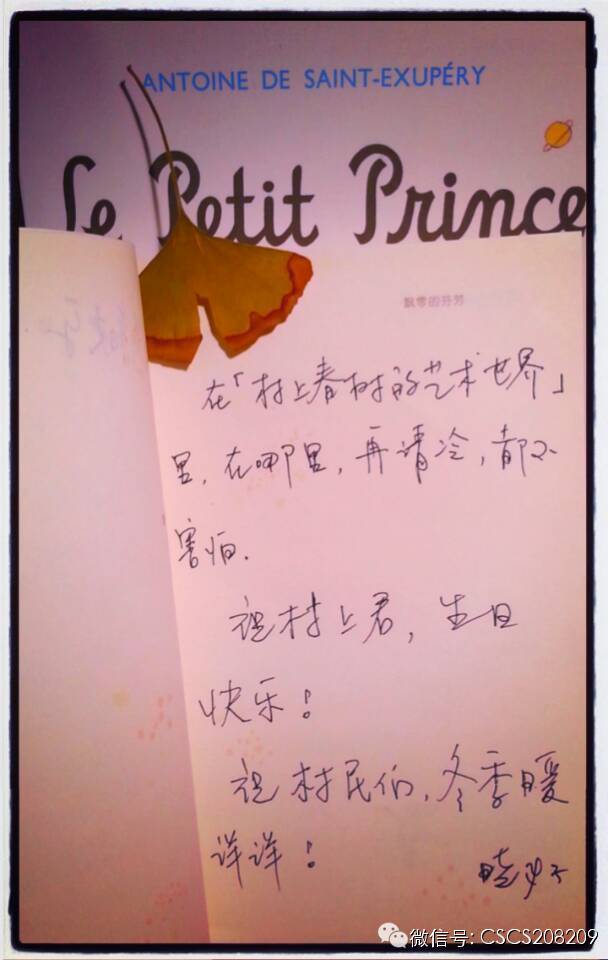 ANTOINE DE SAINT-EXUPÉRY
Le Petit Prince
飘零的芬芳
在「村上春树的艺术世界」
里,在哪里,再清冷,都不
害怕.
祝村上君,生日
快乐!
祝村民们,冬季暖
洋洋!
微信号: CSCS208209